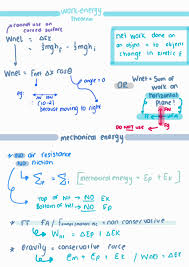 work-energy
theorem
cannot use on
curved surface
Wnet = ΔEk
= ½mvf² - ½mvi²
net work done on
an object = to object's
change in kinetic E
Wnet = Fnet Δx cosθ
angle = 0
because moving to right
OR
Wnet = sum of
work on
Horizontal
plane!
DO NOT USE
mechanical energy
NO air resistance
NO friction
mechanical energy = Ep + Ek
Top of hill → NO Ek
Bottom of hill → NO Ep
= non conservative
Wnc = ΔEp + ΔEk
Gravity = conservative force